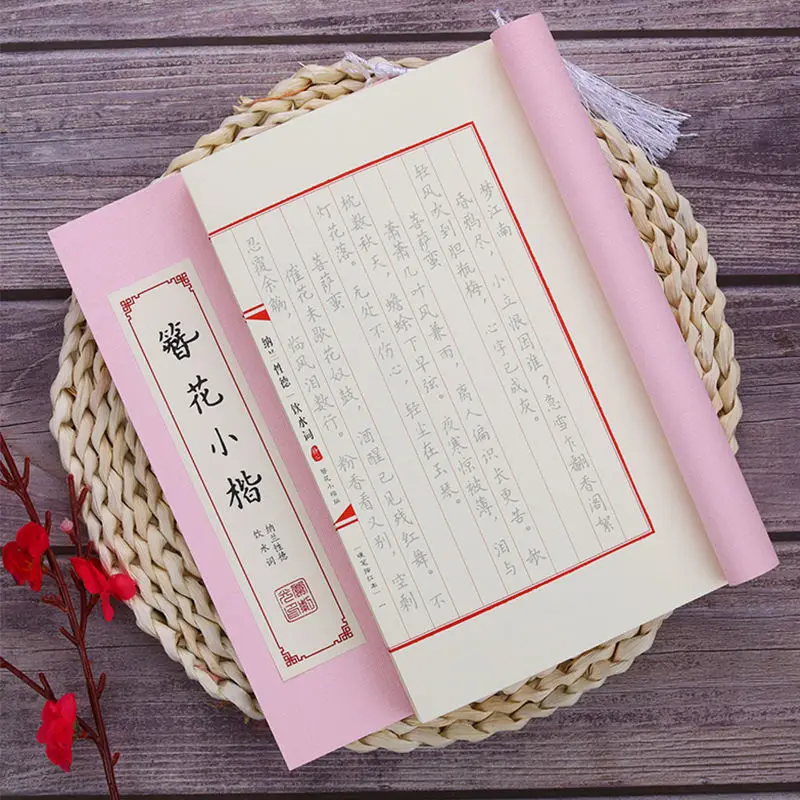 梦江南
昏鸦尽，小立恨因谁？急雪乍翻香阁絮
轻风吹到胆瓶梅，心字已成灰。
菩萨蛮
萧萧几叶风兼雨，离人偏识长更苦。欹
枕数秋天，蟾蜍下早弦。夜寒惊被薄，泪与
灯花落。无处不伤心，轻尘在玉琴。
菩萨蛮
催花未歇花奴鼓，酒醒已见残红舞。不
忍覆余觞，临风泪数行。粉香看又别，空剩
纳兰性德|饮水词
簪花小楷版
|硬笔描红本|
一
簪花小楷
纳兰性德
饮水词